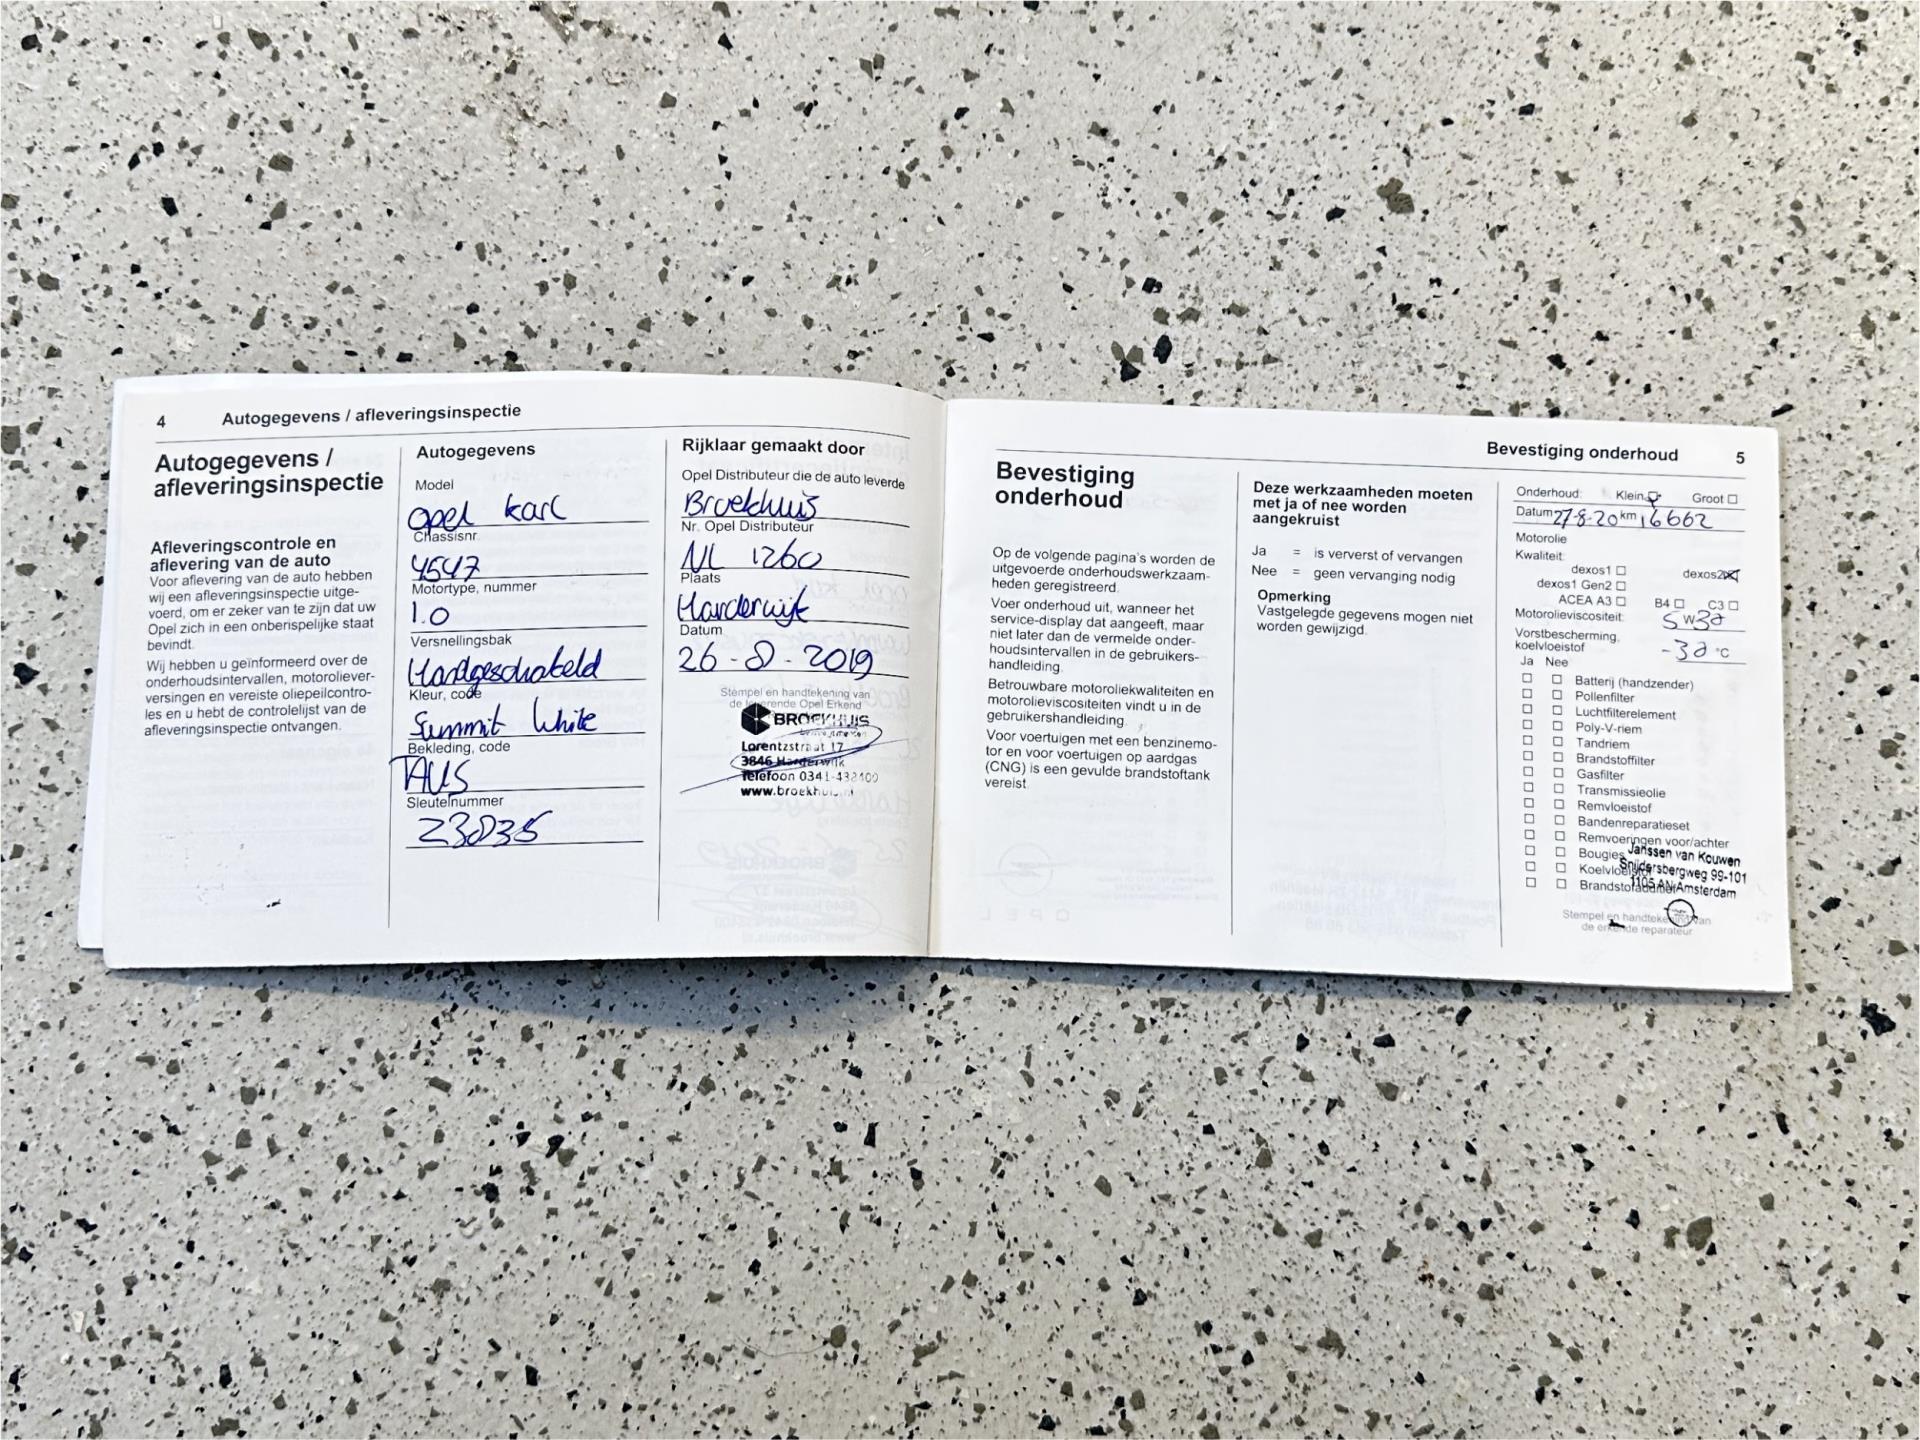 4 Autogegevens / afleveringsinspectie
Autogegevens /
afleveringsinspectie
Afleveringscontrole en
aflevering van de auto
Voor aflevering van de auto hebben
wij een afleveringsinspectie uitge-
voerd, om er zeker van te zijn dat uw
Opel zich in een onberispelijke staat
bevindt.
Wij hebben u geïnformeerd over de
onderhoudsintervallen, motoroliever-
versingen en vereiste oliepeilcontro-
les en u hebt de controlelijst van de
afleveringsinspectie ontvangen.
Autogegevens
Model
Opel karl
Chassisnr.
4547
Motortype, nummer
1.0
Versnellingsbak
Handgeschakeld
Kleur, code
Summit White
Bekleding, code
TAUS
Sleutelnummer
Z3835
Rijklaar gemaakt door
Opel Distributeur die de auto leverde
Broekhuis
Nr. Opel Distributeur
NL 1260
Plaats
Harderwijk
Datum
26-8-2019
Stempel en handtekening van
de leverende Opel Erkend
BROEKHUIS
Lorentzstraat 17
3846 Harderwijk
Telefoon 0341-432400
www.broekhuis.nl
Bevestiging onderhoud 5
Bevestiging
onderhoud
Op de volgende pagina's worden de
uitgevoerde onderhoudswerkzaam-
heden geregistreerd.
Voer onderhoud uit, wanneer het
service-display dat aangeeft, maar
niet later dan de vermelde onder-
houdsintervallen in de gebruikers-
handleiding.
Betrouwbare motoroliekwaliteiten en
motorolieviscositeiten vindt u in de
gebruikershandleiding.
Voor voertuigen met een benzinemo-
tor en voor voertuigen op aardgas
(CNG) is een gevulde brandstoftank
vereist.
Deze werkzaamheden moeten
met ja of nee worden
aangekruist
Ja = is ververst of vervangen
Nee = geen vervanging nodig
Opmerking
Vastgelegde gegevens mogen niet
worden gewijzigd.
Onderhoud: Klein Groot
Datum 27-8-20 km 16662
Motorolie
Kwaliteit:
dexos1 dexos2
dexos1 Gen2
ACEA A3 B4 C3
Motorolieviscositeit: 5 W 30
Vorstbescherming,
koelvloeistof -38 °C
Ja Nee
Batterij (handzender)
Pollenfilter
Luchtfilterelement
Poly-V-riem
Tandriem
Brandstoffilter
Gasfilter
Transmissieolie
Remvloeistof
Bandenreparatieset
Remvoeringen voor/achter
Bougies
Koelvloeistof
Brandstofadditief
Janssen van Kouwen
Snijdersbergweg 99-101
1105 AN Amsterdam
Stempel en handtekening van
de erkende reparateur